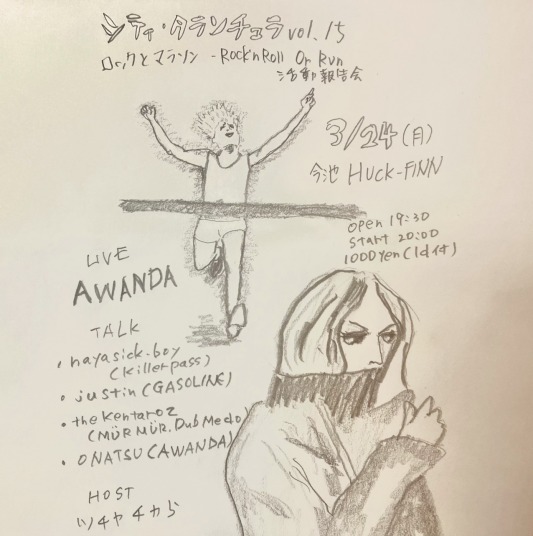 シティ・タランチュラ vol.15
ロックとマラソン -Rock'n Roll Or Run
活動報告会
3/24(月)
今池 HUCK-FINN
open 19:30
start 20:00
1000yen(1d付)
LIVE
AWANDA
TALK
・hayasick-boy
(killerpass)
・justin(GASOLINE)
・the Kentaroz
(MÜR MÜR, Dub Medo)
・ONATSU(AWANDA)
HOST
ツチヤチカら